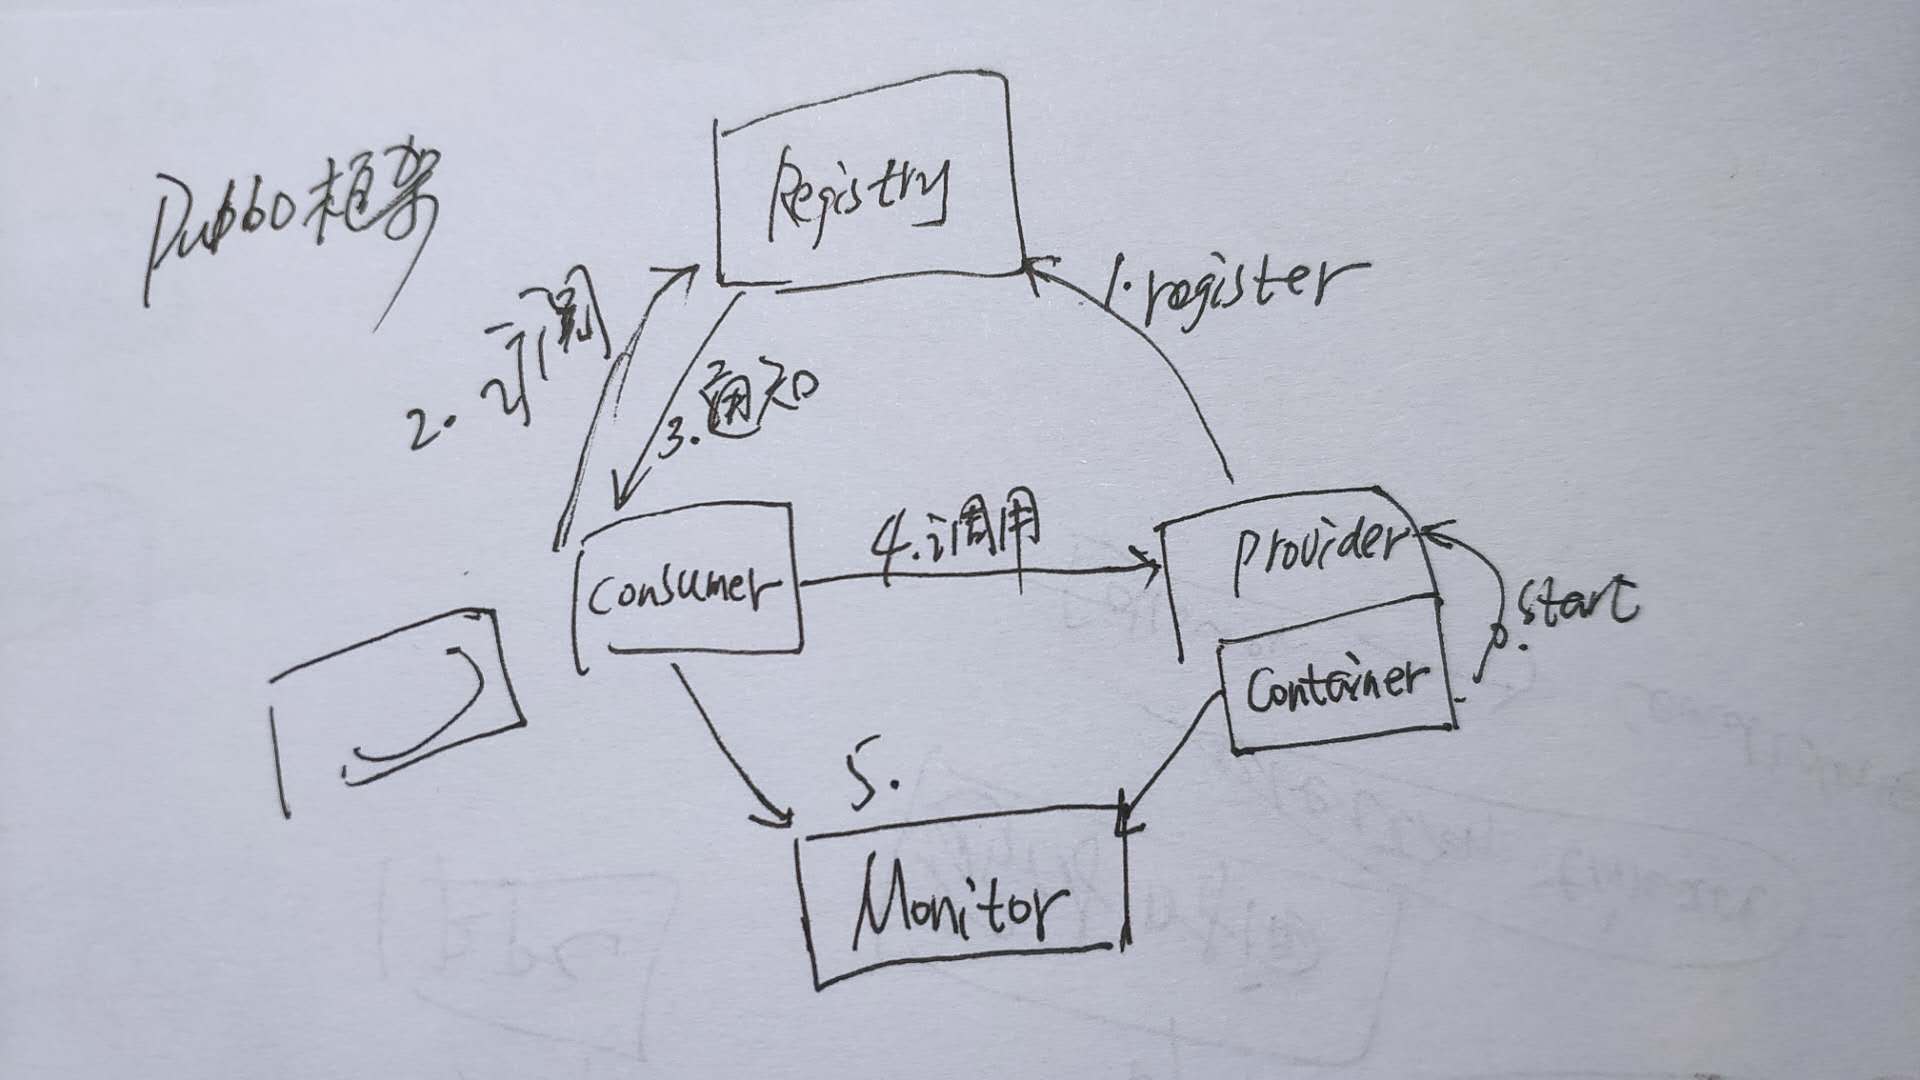 Dubbo框架
Registry
1. register
2. 订阅
3. 通知
4. 调用
Consumer
Provider
0. start
Container
5.
Monitor